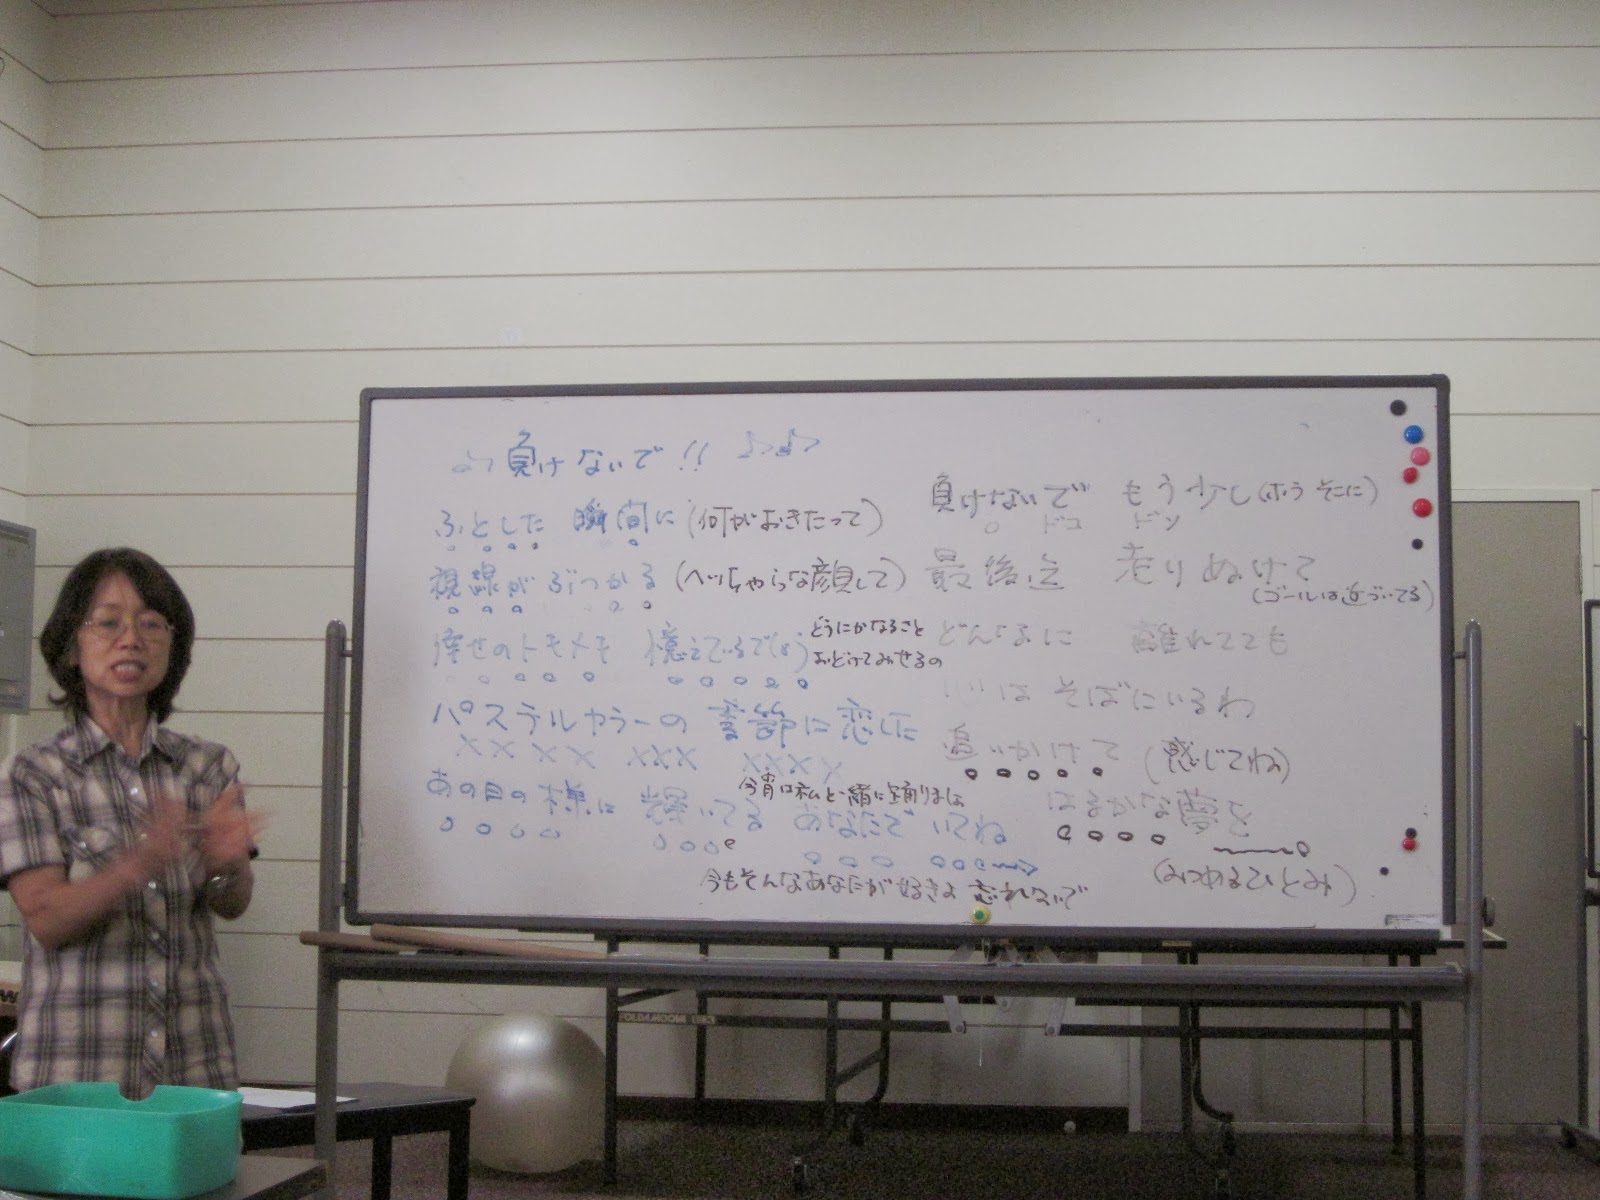 負けないで!!
ふとした 瞬間に(何がおきたって)
視線が ぶつかる (ヘッちゃらな顔して)
倖せのトキメキ 憶えているでしょ
どうにかなるさと
おどけてみせるの
パステルカラーの 季節に恋した
あの日の様に 輝いてる あなたでいてね
今宵は私と一緒に踊りましょ
今もそんなあなたが好きよ 忘れないで
負けないで もう少し(ホラ そこに)
ドコ ドン
最後迄 走りぬけて
(ゴールは近づいてる)
どんなに 離れてても
心は そばにいるわ
追いかけて (感じてね)
はるかな夢を
(みつめるひとみ)